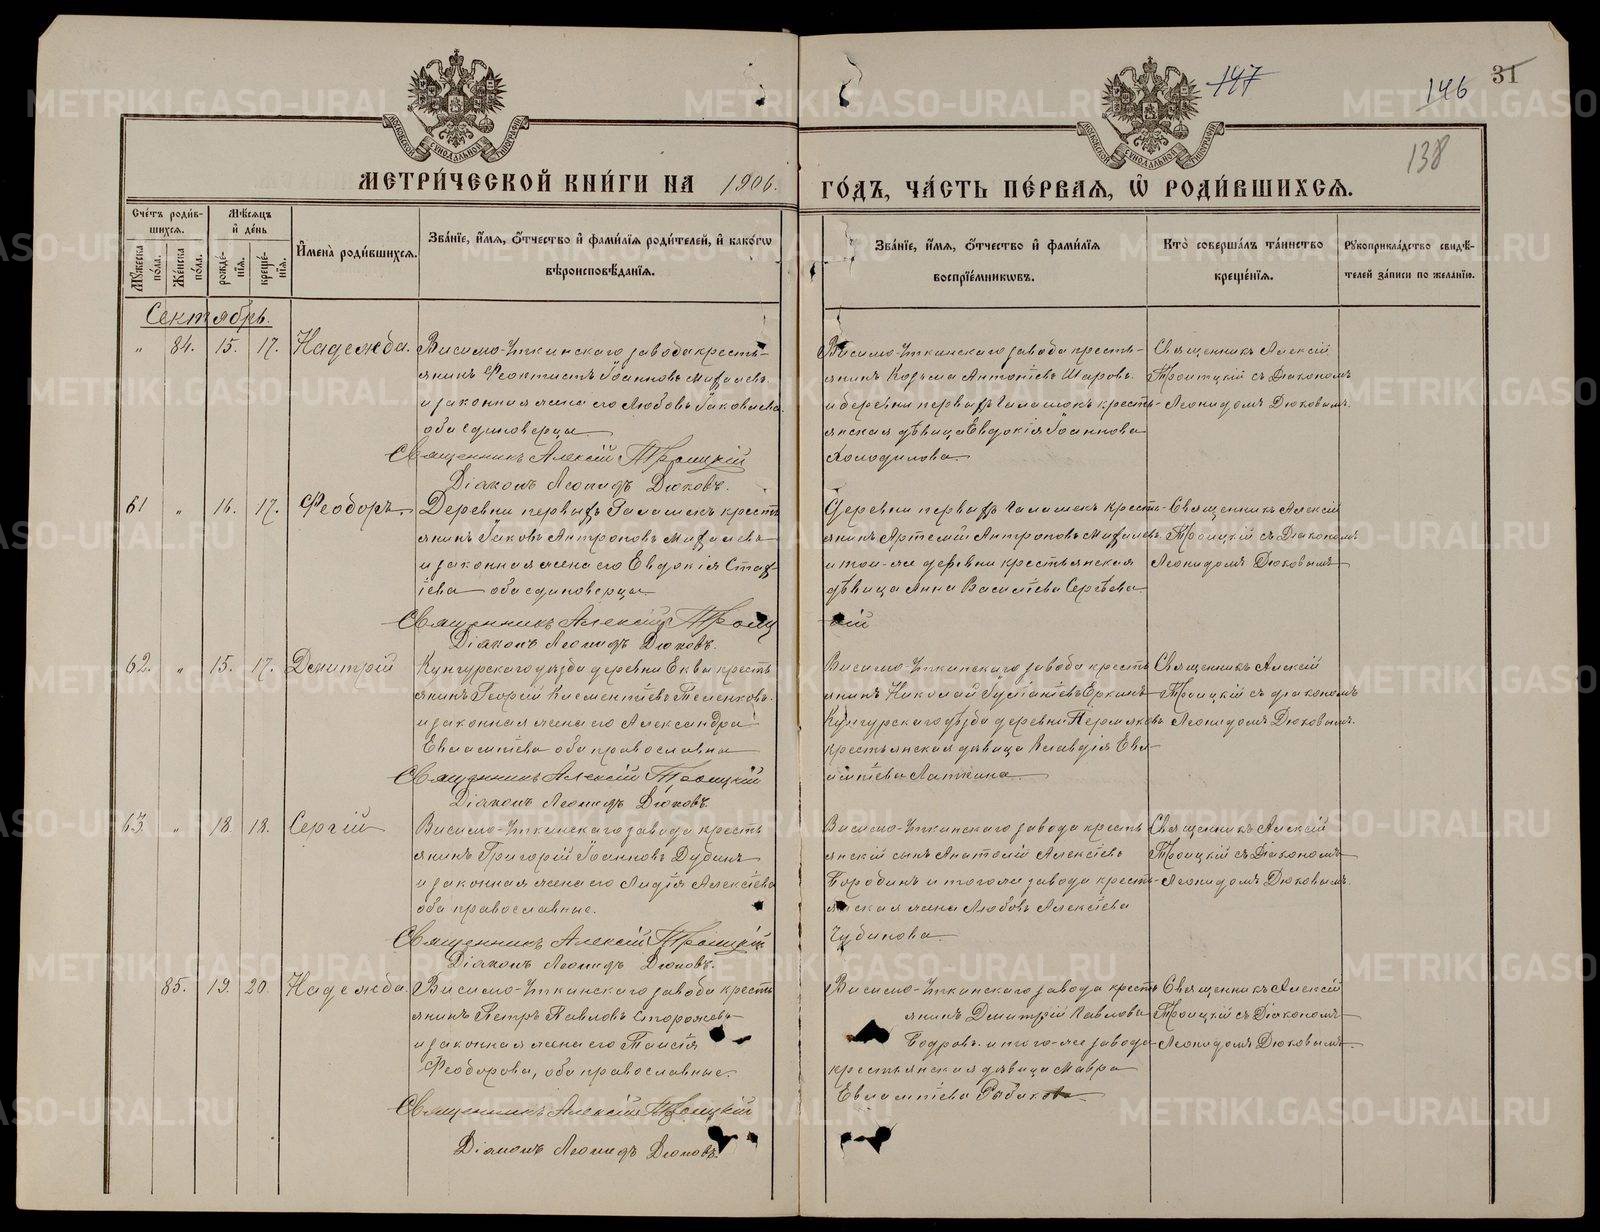 147
146
31
138
МЕТРИ́ЧЕСКОЙ КНИ́ГИ НА 1906.
ГО́ДЪ, ЧА́СТЬ ПЕ́РВАЯ, Ѿ РОДИ́ВШИХСѦ.
Сче́тъ роди́в-
шихсѧ.
Мѣ́сѧцъ
и҆ де́нь
Мꙋ́жеска по́ла.
Же́нска по́ла.
рожде́-
нїѧ.
креще́-
нїѧ.
И҆мена̀ роди́вшихсѧ.
Зва́нїе, и҆́мѧ, ѻ҆́тчество и҆ фами́лїѧ роди́телей, и҆ како́гѡ
вѣроисповѣ́данїѧ.
Зва́нїе, и҆́мѧ, ѻ҆́тчество и҆ фами́лїѧ
воспрїе́мникѡвъ.
Кто̀ соверша́лъ та́инство
креще́нїѧ.
Рꙋкоприкла́дство свидѣ́-
телей за́писи по жела́нїю.
Сентябрь.
" 84. 15. 17. Надежда.
Висимо-Уткинскаго завода кресть-
янинъ Феоктистъ Іоанновъ Михалевъ
и законная жена его Любовь Іаковлева
оба единоверцы
Священникъ Алексій Троицкій
Діаконъ Леонидъ Дюковъ.
Висимо-Уткинскаго завода кресть-
янинъ Козьма Антоніевъ Шаровъ
и деревни первыхъ Галашекъ кресть-
янская дѣвица Евдокія Іоаннова
Холодилова
Священникъ Алексій
Троитцкій съ Діакономъ
Леонидомъ Дюковымъ.
61 " 16. 17. Феодоръ.
Деревни первыхъ Галашекъ кресть
янинъ Іаковъ Антроповъ Михалевъ
и законная жена его Евдокія Стах
іева оба единоверцы
Священникъ Алексій Троиц
кій
Діаконъ Леонидъ Дюковъ.
Деревни первыхъ Галашекъ кресть-
янинъ Артемій Антроповъ Михалевъ
и той-же деревни крестьянская
дѣвица Анна Василіева Сергѣева
Священникъ Алексій
Троицкій съ Діакономъ
Леонидомъ Дюковымъ
62. " 15. 17. Димитрій
Кунгурскаго уѣзда деревни Еквы кресть
янинъ Георгій Климентіевъ Теленковъ
и законная жена его Александра
Евлампіева оба православны
Священникъ Алексій Троицкій
Діаконъ Леонидъ Дюковъ.
Висимо-Уткинскаго завода кресть
янинъ Николай
Кунгурскаго уѣзда деревни Пермяковъ
крестьянская дѣвица Клавдія Евла
мпіева Латкина
Священникъ Алексій
Троицкій съ діакономъ
Леонидомъ Дюковымъ.
63 " 18. 18. Сергій
Висимо-Уткинскаго завода кресть
янинъ Григорій Іоанновъ Дубинъ
и законная жена его Лидія Алексіева
оба православные.
Священникъ Алексій Троицкій
Діаконъ Леонидъ Дюковъ.
Висимо-Уткинскаго завода кресть
янскій сынъ Анатолій Алексіевъ
Бородинъ и того же завода кресть-
янская жена Любовь Алексіева
Чубикова
Священникъ Алексій
Троицкій съ Діакономъ
Леонидомъ Дюковымъ.
85. 19. 20. Надежда
Висимо-Уткинскаго завода кресть
янинъ Петръ Павловъ Сторожевъ
и законная жена его Таисія
Феодорова, оба православные.
Священникъ Алексій Троицкій
Діаконъ Леонидъ Дюковъ.
Висимо-Уткинскаго завода кресть
янинъ Димитрій Павловъ
Бодровъ и того-же завода
крестьянская дѣвица Мавра
Евлампіева Рыбакова
Священникъ Алексій
Троицкій съ Діакономъ
Леонидомъ Дюковымъ.
METRIKI.GASO-URAL.RU